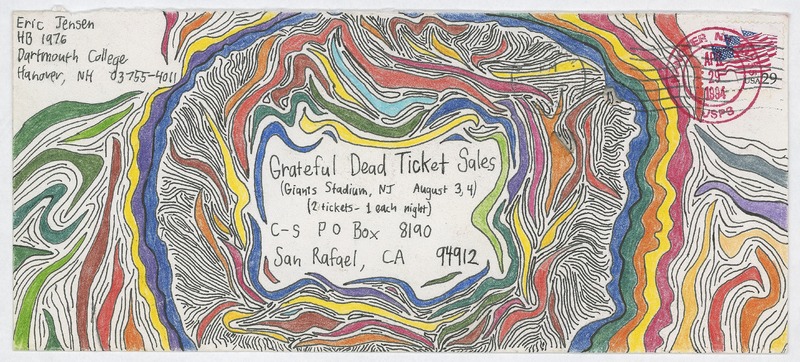 Eric Jensen
HB 1976
Dartmouth College
Hanover, NH 03755-4011
APR
29
1994
USPS
USA 29
Grateful Dead Ticket Sales
(Giants Stadium, NJ August 3, 4)
(2 tickets - 1 each night)
C-S P O Box 8190
San Rafael, CA 94912